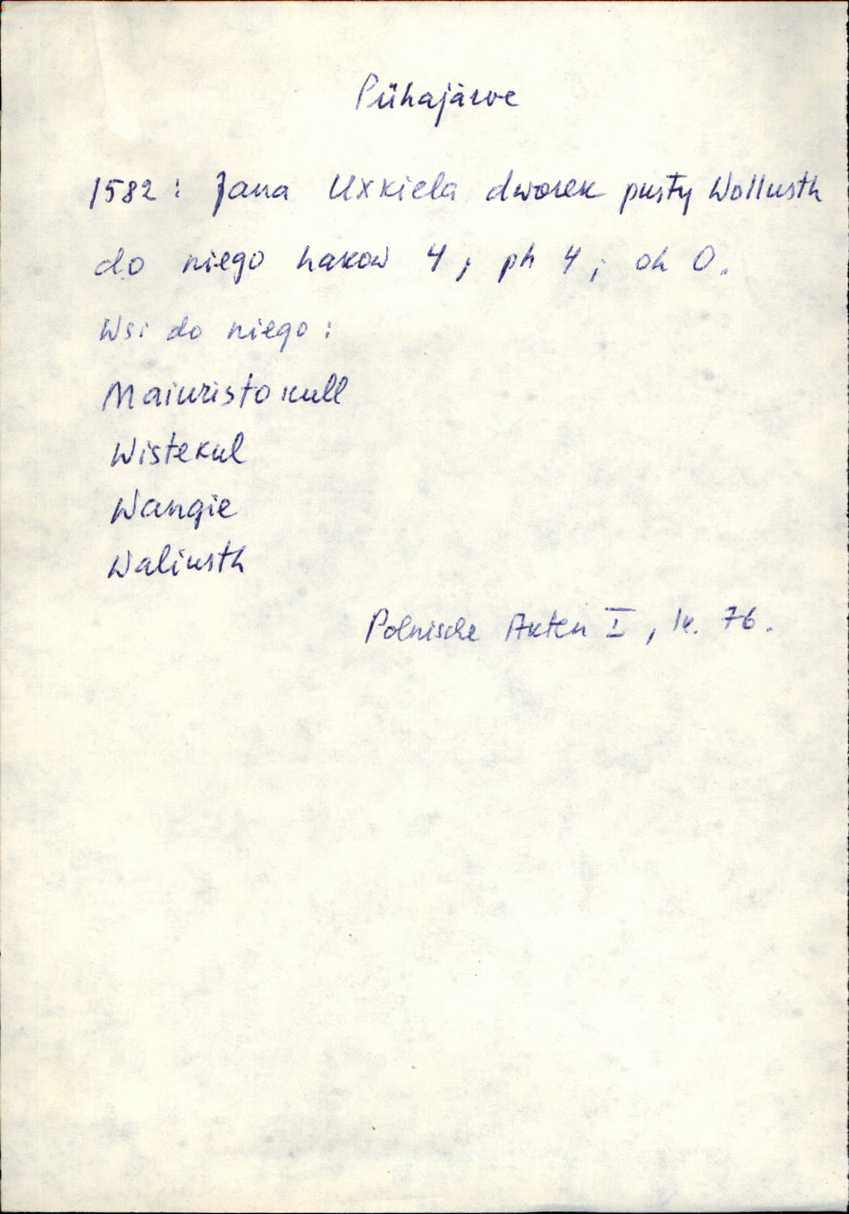 Pühajärve
1582: Jana Uxkiela dworek pusty Wollusth
do niego hakow 4; ph 4; oh 0.
Wsi do niego:
Maiuristokull
Wistekul
Wangie
Waliusth
Polnische Akten I, lk. 76.